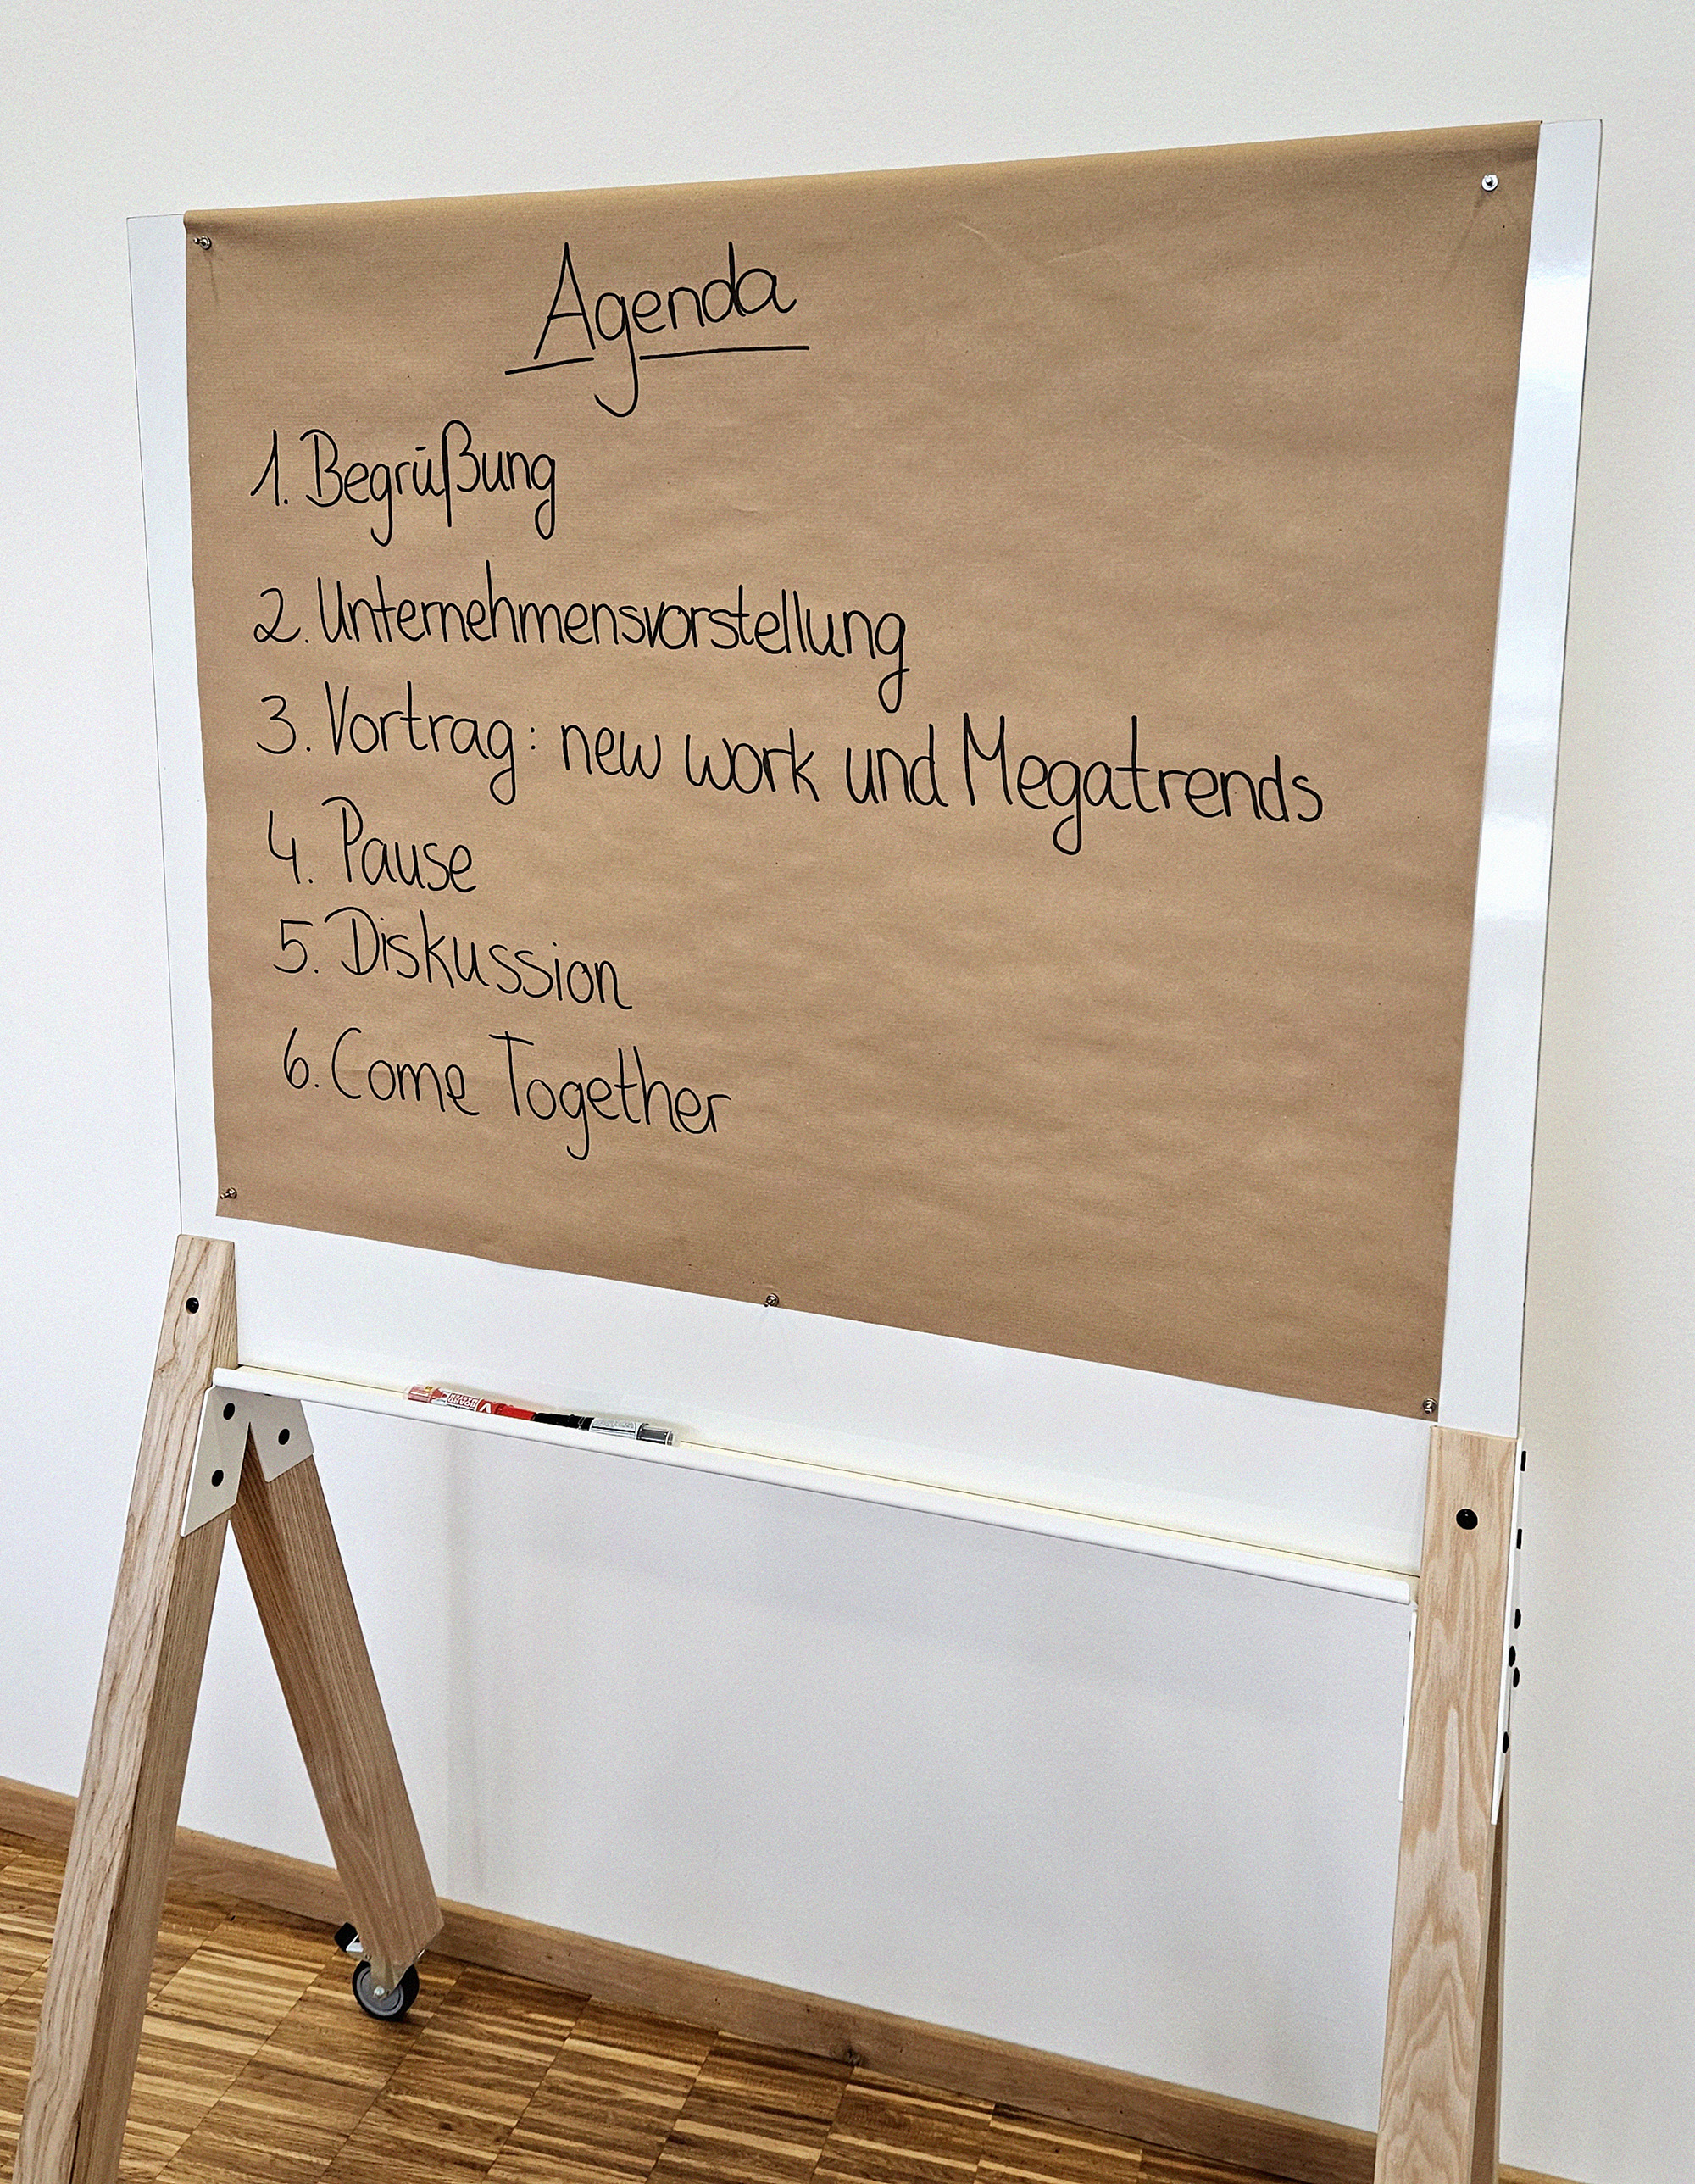 Agenda
1. Begrüßung
2. Unternehmensvorstellung
3. Vortrag: new work und Megatrends
4. Pause
5. Diskussion
6. Come Together